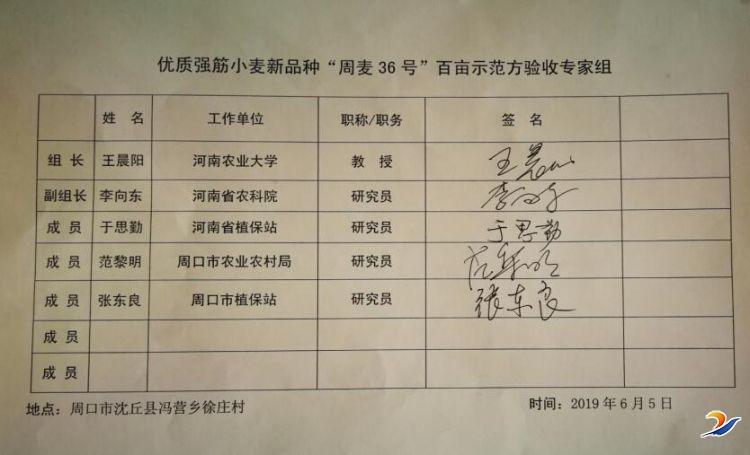 优质强筋小麦新品种“周麦36号”百亩示范方验收专家组
姓 名 工作单位 职称/职务 签 名
组 长 王晨阳 河南农业大学 教 授 王晨阳
副组长 李向东 河南省农科院 研究员 李向东
成 员 于思勤 河南省植保站 研究员 于思勤
成 员 范黎明 周口市农业农村局 研究员 范黎明
成 员 张东良 周口市植保站 研究员 张东良
成 员
成 员
地点：周口市沈丘县冯营乡徐庄村 时间：2019年6月5日